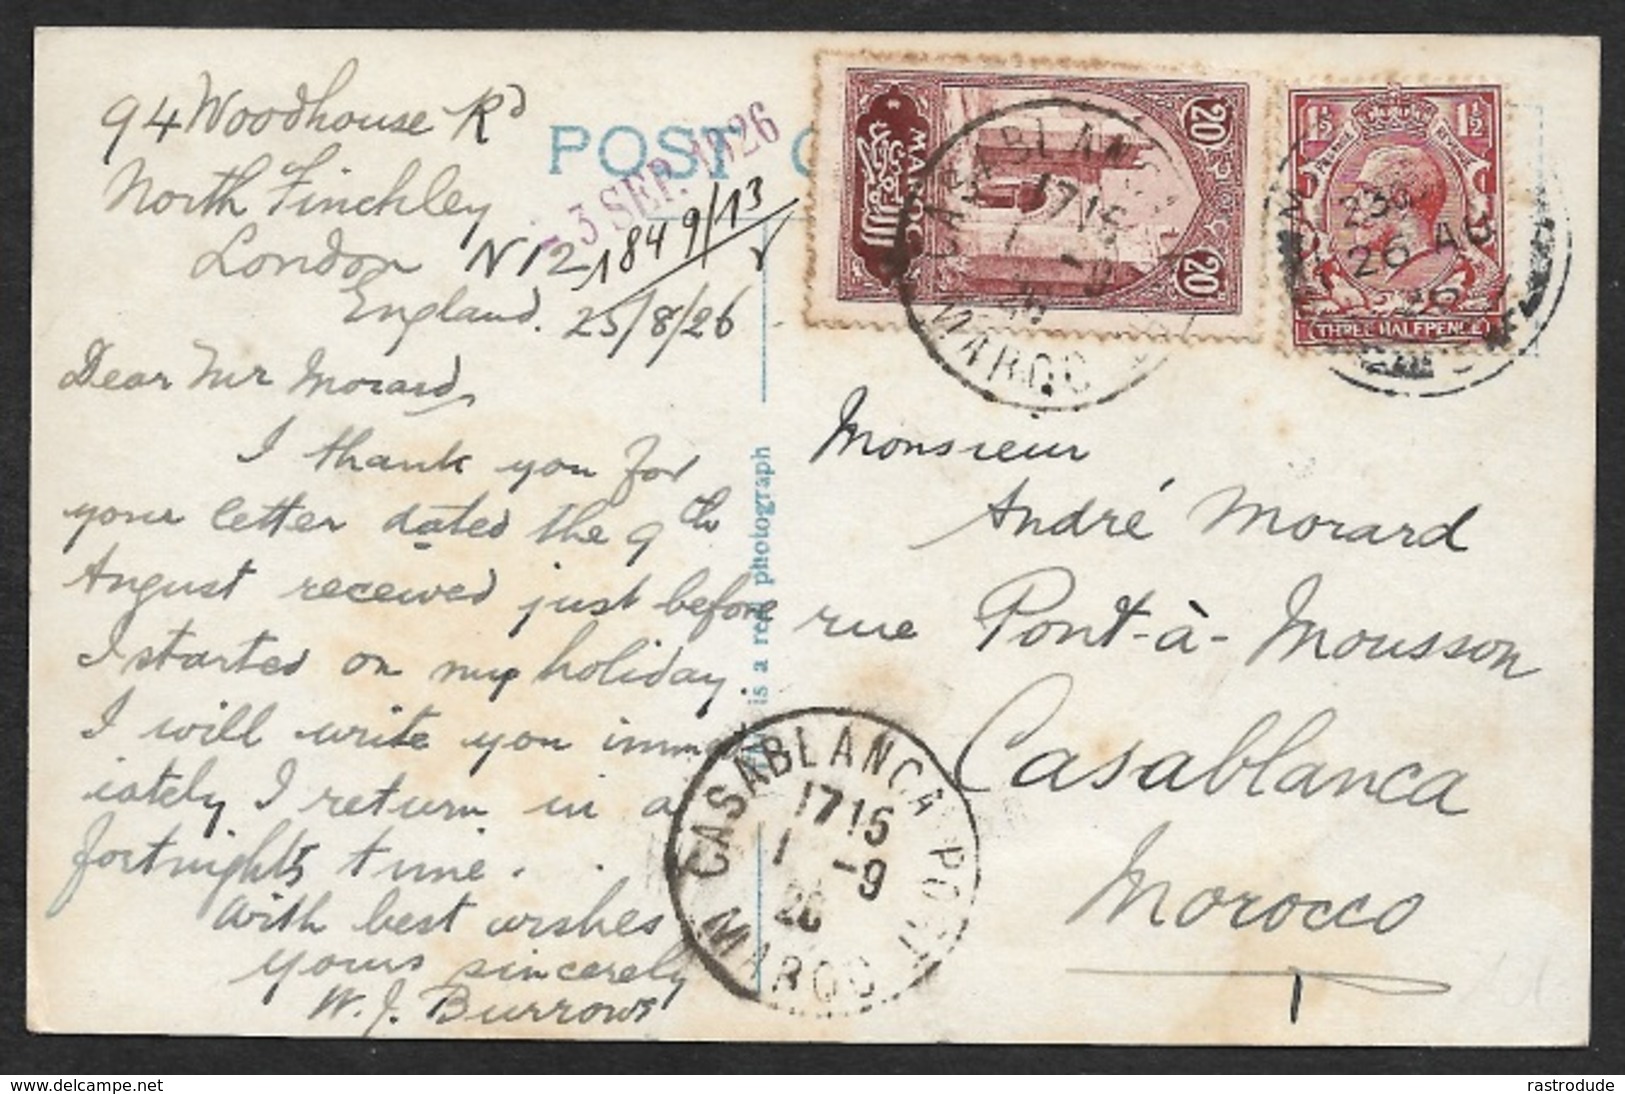 94 Woodhouse Rd
North Finchley
London N12
England. 25/8/26
Dear Mr Morard,
I thank you for
your letter dated the 9th
August received just before
I started on my holiday.
I will write you imme
iately I return in a
fortnights time.
With best wishes
yours sincerely
W. J. Burrows
POST C
- 3 SEP. 1926
1849 9/13
is a real photograph
MAROC
20
20
CASABLANCA
1715
1 -9
26
MAROC
1½ 1½
POSTAGE REVENUE
THREE HALFPENCE
26 AU
26
Monsieur
André Morard
rue Pont-à-Mousson
Casablanca
Morocco
CASABLANCA POSTE
1715
1 -9
26
MAROC
rastrodude